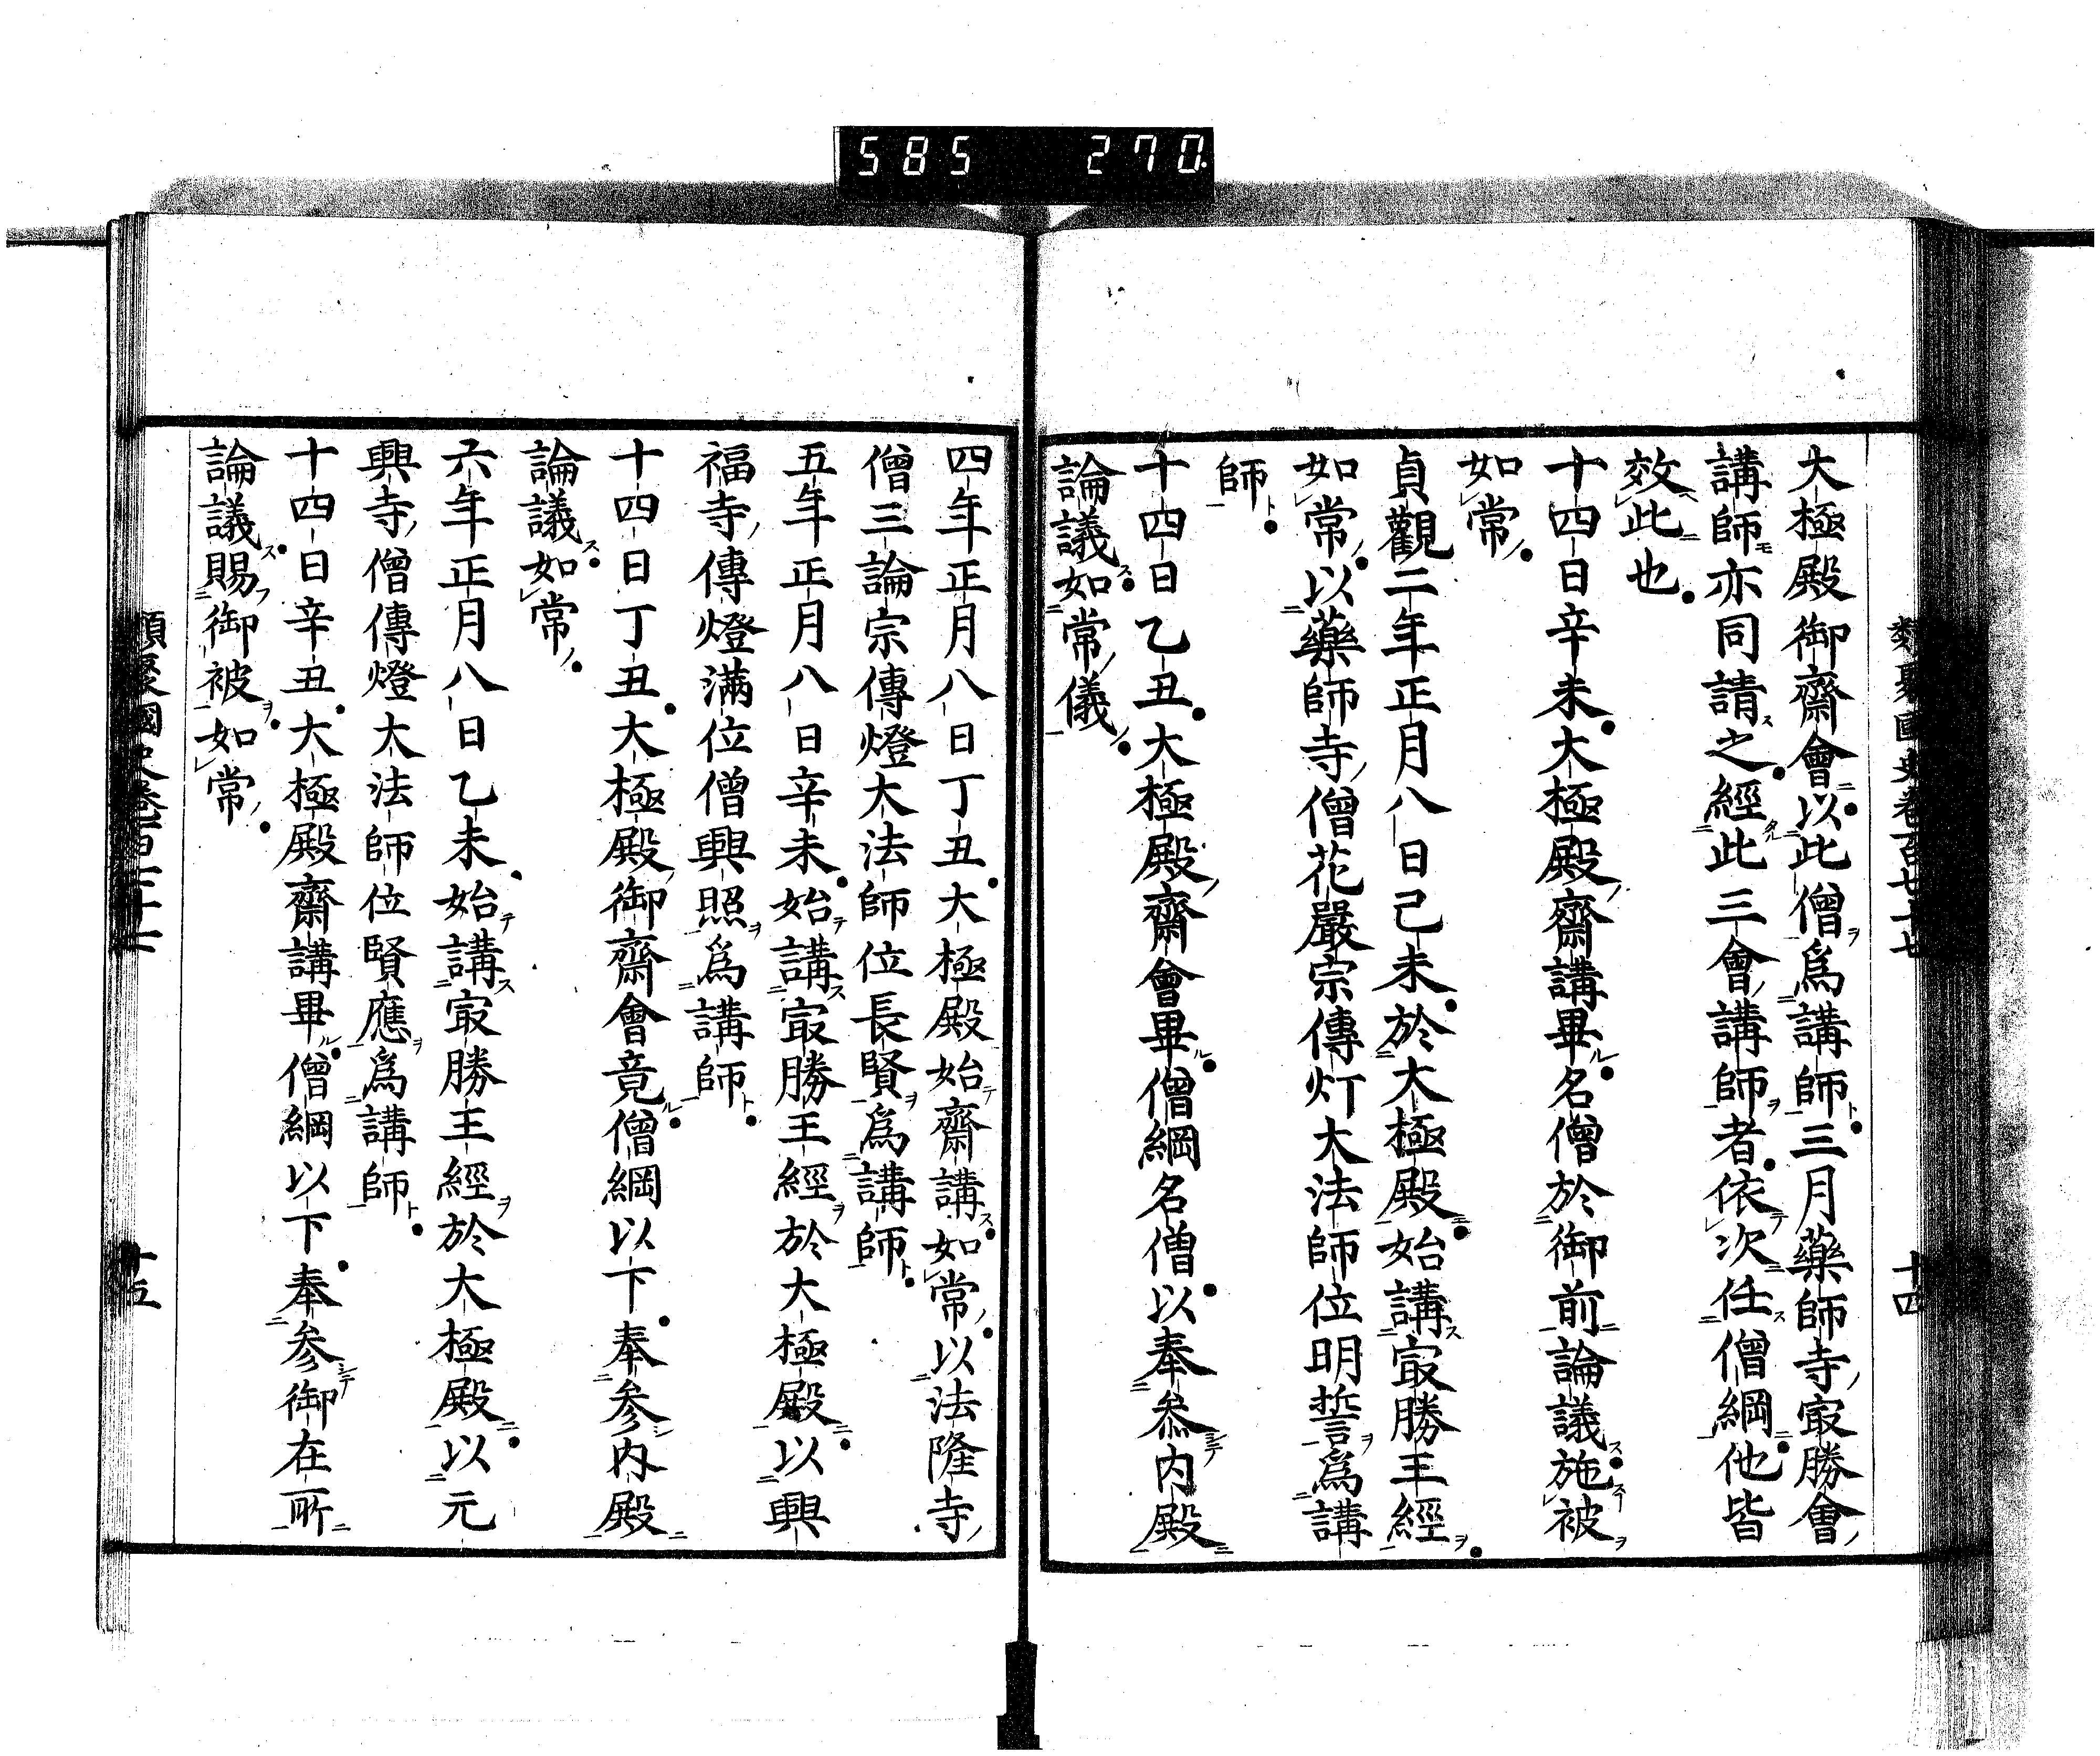 585 270
類聚國史卷百七十七 十四
大極殿御齋會以此僧爲講師三月藥師寺㝡勝會
講師亦同請之經此三會講師者依次任僧綱他皆
效此也
十四日辛未大極殿齋講畢名僧於御前論議施被
如常
貞觀二年正月八日己未於大極殿始講㝡勝王經
如常以藥師寺僧花嚴宗傳灯大法師位明誓爲講
師
十四日乙丑大極殿齋會畢僧綱名僧以奉叅内殿
論議如常儀
四年正月八日丁丑大極殿始齋講如常以法隆寺
僧三論宗傳燈大法師位長賢爲講師
五年正月八日辛未始講㝡勝王經於大極殿以興
福寺傳燈滿位僧興照爲講師
十四日丁丑大極殿御齋會竟僧綱以下奉参内殿
論議如常
六年正月八日乙未始講㝡勝王經於大極殿以元
興寺僧傳燈大法師位賢應爲講師
十四日辛丑大極殿齋講畢僧綱以下奉参御在所
論議賜御被如常
類聚國史卷百七十七 十五